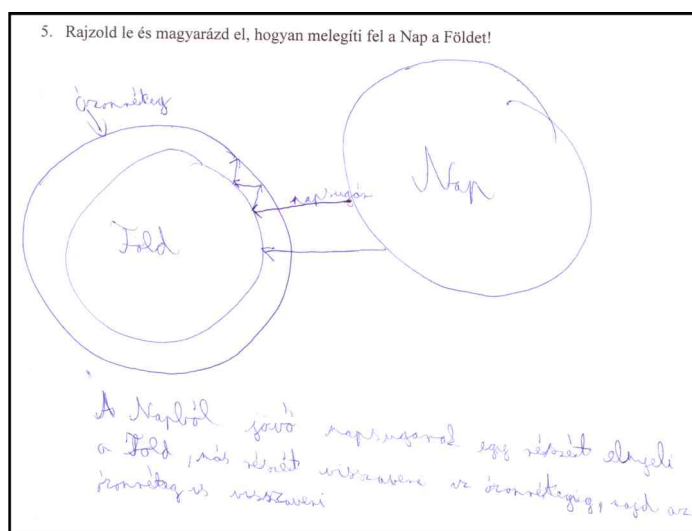 5. Rajzold le és magyarázd el, hogyan melegíti fel a Nap a Földet!
ózonréteg
Nap
napsugár
Föld
A Napból jövő napsugarak egy részét elnyeli
a Föld, más részét visszaveri az ózonrétegig, majd az
ózonréteg is visszaveri